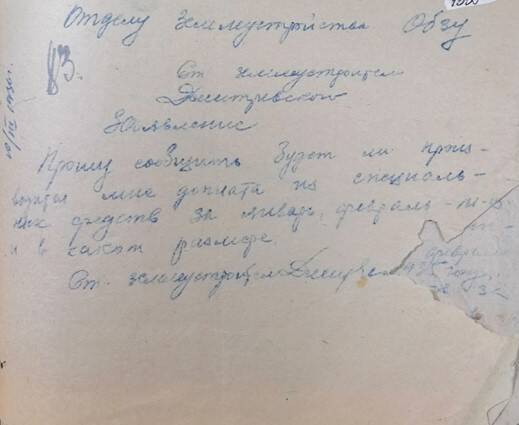 Отделу Землеустройства Обзу
83.
Ст землеустроителя
Дмитриевской
Заявление
Прошу сообщить будет ли произ-
водится мне доплата из специаль-
ных средств за январь, февраль-м-ц
и в каком размере.
Ст. землеустроитель
феврал